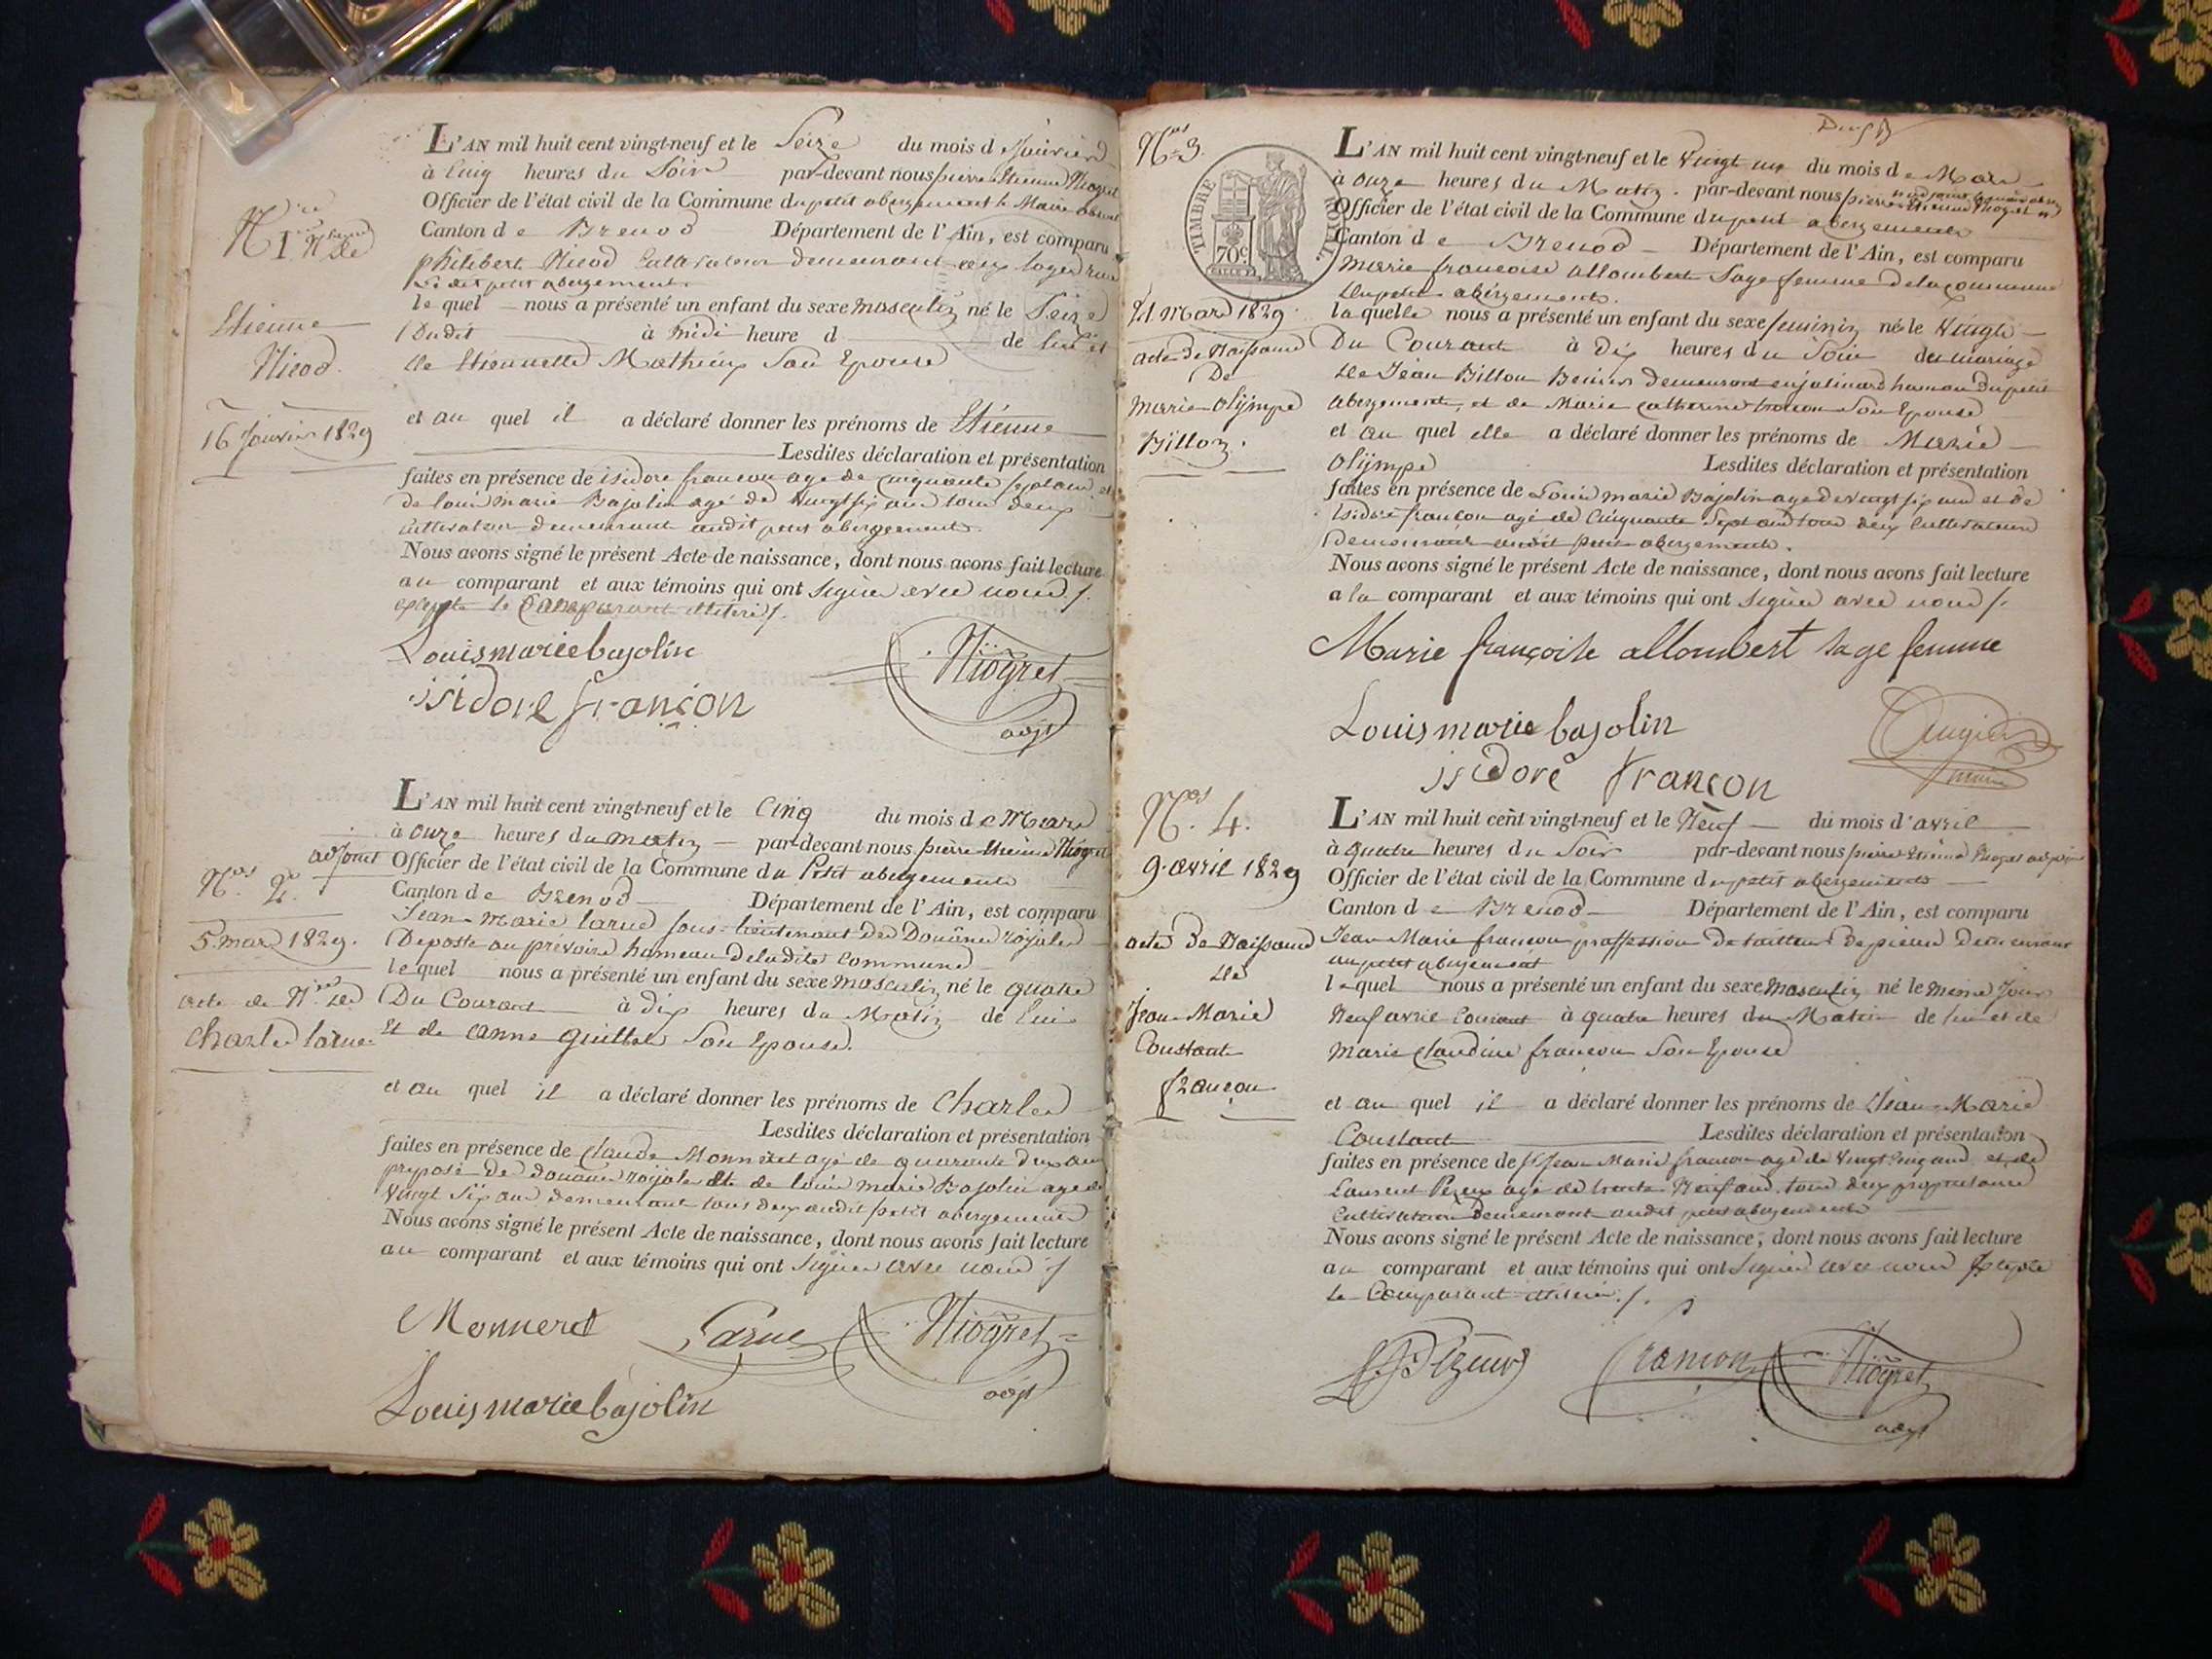 L'AN mil huit cent vingt-neuf et le Seize du mois d
à Cinq heures du Soir par-devant nous pierre Etienne Niogret
Officier de l'état civil de la Commune du petit abergement le Maire absent
Canton de Brenod Département de l'Ain, est comparu
philibert Nicod Cultivateur demeurant
Le dit petit abergement
le quel nous a présenté un enfant du sexe masculin né le Seize
Dudit à midi heure d de lui et
de Etiennette Mathieux Son Epouse
et au quel il a déclaré donner les prénoms de Etienne
Lesdites déclaration et présentation
faites en présence de isidore françon agé de cinquante sept ans et
de louis marie Bajolin agé de vingt six ans tous deux
Cultivateur demeurant audit petit abergement
Nous avons signé le présent Acte de naissance, dont nous avons fait lecture
au comparant et aux témoins qui ont Signer avec nous
excepte le Comparant illiteré
Louis marie bajolin
Niogret
isidore françon
adjt
N 1
Etienne
Nicod.
16 Janvier 1829
L'AN mil huit cent vingt-neuf et le Cinq du mois de Mars
à onze heures du matin par-devant nous pierre Etienne Niogret
adjoint Officier de l'état civil de la Commune du Petit abergement
Canton de Brenod Département de l'Ain, est comparu
Jean-Marie larue Sous-lieutenant des Douânes royales
De poste au prévoire hameau de ladite Commune
le quel nous a présenté un enfant du sexe masculin né le quatre
Du Courant à dix heures du Matin de lui
Et de anne Son Epouse.
et au quel il a déclaré donner les prénoms de Charles
Lesdites déclaration et présentation
faites en présence de Claude Monneret agé de quarante deux ans
préposé des douanes royales et de louis marie Bajolin agé de
Vingt Six ans demeurant tous deux audit petit abergement
Nous avons signé le présent Acte de naissance, dont nous avons fait lecture
au comparant et aux témoins qui ont Signer avec nous
Monneret Larue Niogret
adjt
Louis marie bajolin
Nos 2.
5 mars 1829.
acte de
Charles larue
L'AN mil huit cent vingt-neuf et le Vingt un du mois de Mars
à onze heures du Matin. par-devant nous
Officier de l'état civil de la Commune du petit abergement
Canton de Brenod Département de l'Ain, est comparu
Marie francoise allombert Sage femme de la commune
du petit abergement.
la quelle nous a présenté un enfant du sexe feminin né le Vingt
Du Courant à Dix heures du Soir du mariage
de Jean Billon demeurant en jalinard hameau du petit
abergement, et de Marie Catherine françon Son Epouse
et au quel elle a déclaré donner les prénoms de Marie
Olijmpe Lesdites déclaration et présentation
faites en présence de Louis marie Bajolin agé de vingt six ans et de
Isidore françon agé de Cinquante Sept ans tous deux Cultivateurs
Demeurant audit petit abergement.
Nous avons signé le présent Acte de naissance, dont nous avons fait lecture
a la comparant et aux témoins qui ont Signer avec nous
Marie françoise allombert sage femme
Louis marie bajolin
isidore françon
Nos 3.
TIMBRE ROYAL
70c
21 Mars 1829
acte de Naissance
De
Marie Olijmpe
Billon.
L'AN mil huit cent vingt-neuf et le Neuf du mois d'avril
à quatre heures du Soir par-devant nous pierre Etienne Niogret adjoint
Officier de l'état civil de la Commune du petit abergement
Canton de Brenod Département de l'Ain, est comparu
Jean Marie françon proffession de tailleur de pierre Demeurant
au petit abergement
lequel nous a présenté un enfant du sexe Masculin né le même Jour
Neuf avril Courant à quatre heures du Matin de lui et de
Marie Claudine françon Son Epouse
et au quel il a déclaré donner les prénoms de Jean-Marie
Constant Lesdites déclaration et présentation
faites en présence de Jean Marie françon agé de Vingt Cinq ans et de
Laurent agé de trente Neuf ans tous deux proprietaires
Cultivateurs Demeurant audit petit abergement
Nous avons signé le présent Acte de naissance, dont nous avons fait lecture
au comparant et aux témoins qui ont Signer avec nous Excepté
le Comparant
françon Niogret
adjt
Nos. 4.
9. avril 1829
acte de Naissance
de
Jean-Marie
Constant
françon